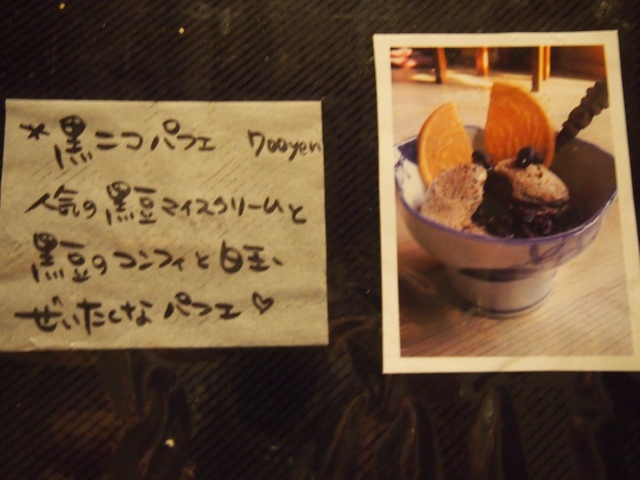 *黒ニコパフェ 700yen
人気の黒糖アイスクリームと
黒糖のコンフィと白玉、
ぜいたくな パフェ♡